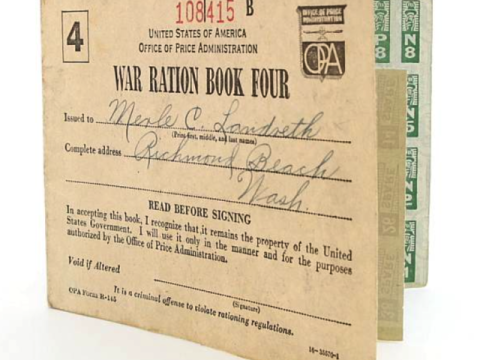 108415 B
4
UNITED STATES OF AMERICA
OFFICE OF PRICE ADMINISTRATION
OFFICE OF PRICE
ADMINISTRATION
OPA
WAR RATION BOOK FOUR
Issued to Merle C. Landreth
(Print first, middle, and last names)
Complete address Richmond Beach
Wash.
READ BEFORE SIGNING
In accepting this book, I recognize that it remains the property of the United
States Government. I will use it only in the manner and for the purposes
authorized by the Office of Price Administration.
Void if Altered
(Signature)
It is a criminal offense to violate rationing regulations.
OPA Form R-145
P
8
N
8
N
5
N